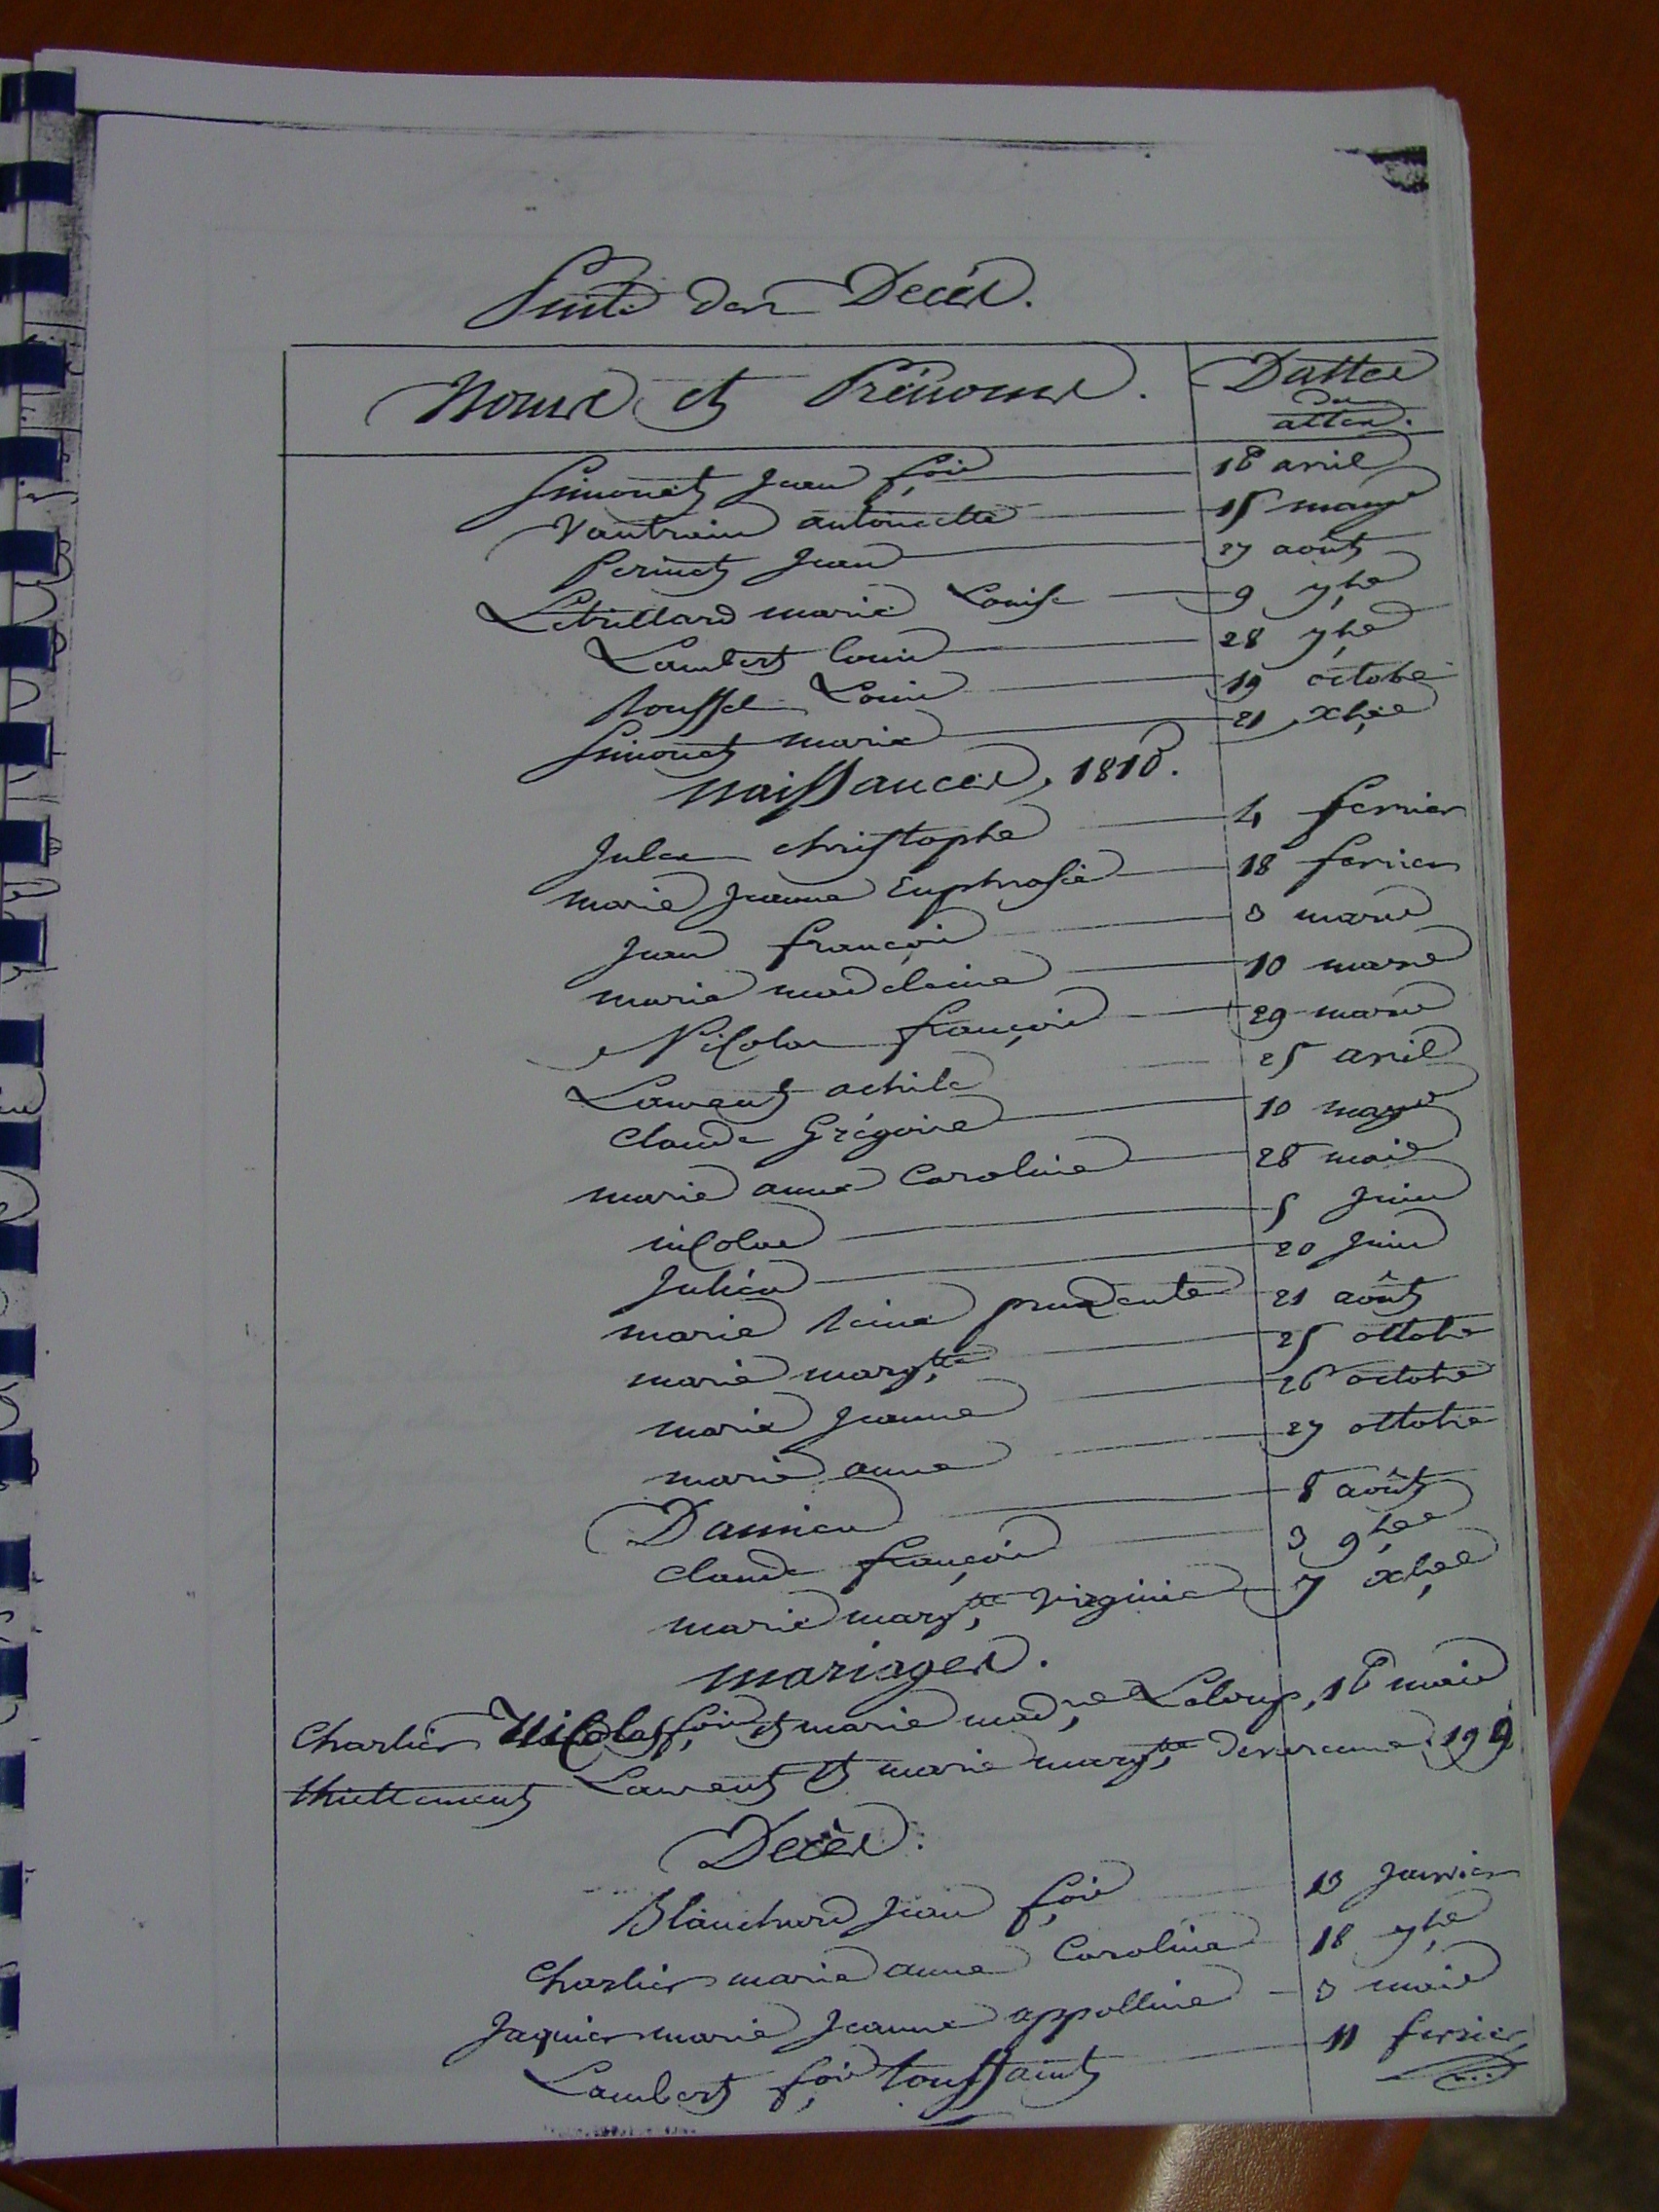 Suite des Decès.
Noms et Prénoms. Dattes
des
attes.
Simonet Jean fois 16 avril
Vautrain antoinette 15 mays
Perinet Jean 27 août
Letullard marie Louise 9 7bre
Lambert Louis 28 7bre
Roussel Louis 19 octobre
Simonet marie 21 xbre
naissances, 1810.
Jules christophe 4 fevrier
marie Jeanne Euphrosie 18 fevrier
Jean françois 3 mars
marie madeleine 10 mars
Nicolas françois 29 mars
Laurent achile 25 avril
Claude Grégoire 10 mays
marie anne Caroline 28 mais
nicolas 5 Juin
Julien 20 Juin
marie reine prudente 21 août
marie margtte 25 octobre
marie Jeanne 26 octobre
marie anne 27 octobre
Damien 8 août
claude françois 3 9bre
marie margtte Virginie 7 xbre
mariages.
Charlier Nicolas fois et marie madne Leloup, 16 mais
thiettement Laurent et marie margtte 19
Decès.
Blanchard Jean fois 13 Janvier
Charlier marie anne Caroline 18 7bre
Jaquier marie Jeanne appolline 3 mais
Lambert fois toussaint 11 fevrier